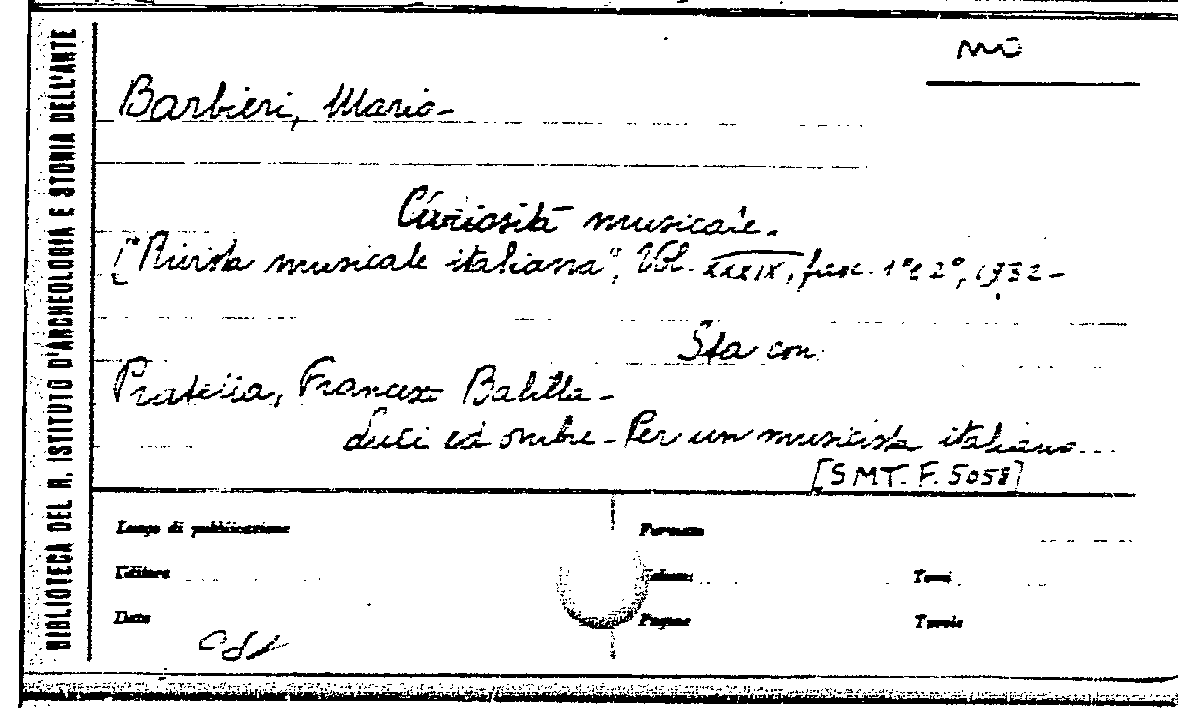 BIBLIOTECA DEL R. ISTITUTO D'ARCHEOLOGIA E STORIA DELL'ARTE
Barbieri, Mario-
Curiosità musicale.
["Rivista musicale italiana", Vol. XXXIX, fasc. 1° e 2°, 1932-
Sta con:
Pratella, Francesco Balilla-
Luci ed ombre - Per un musicista italiano...
[SMT. F. 5058]
Luogo di pubblicazione
Formato
Editore
Volumi
Tomi
Data
Pagine
Tavole